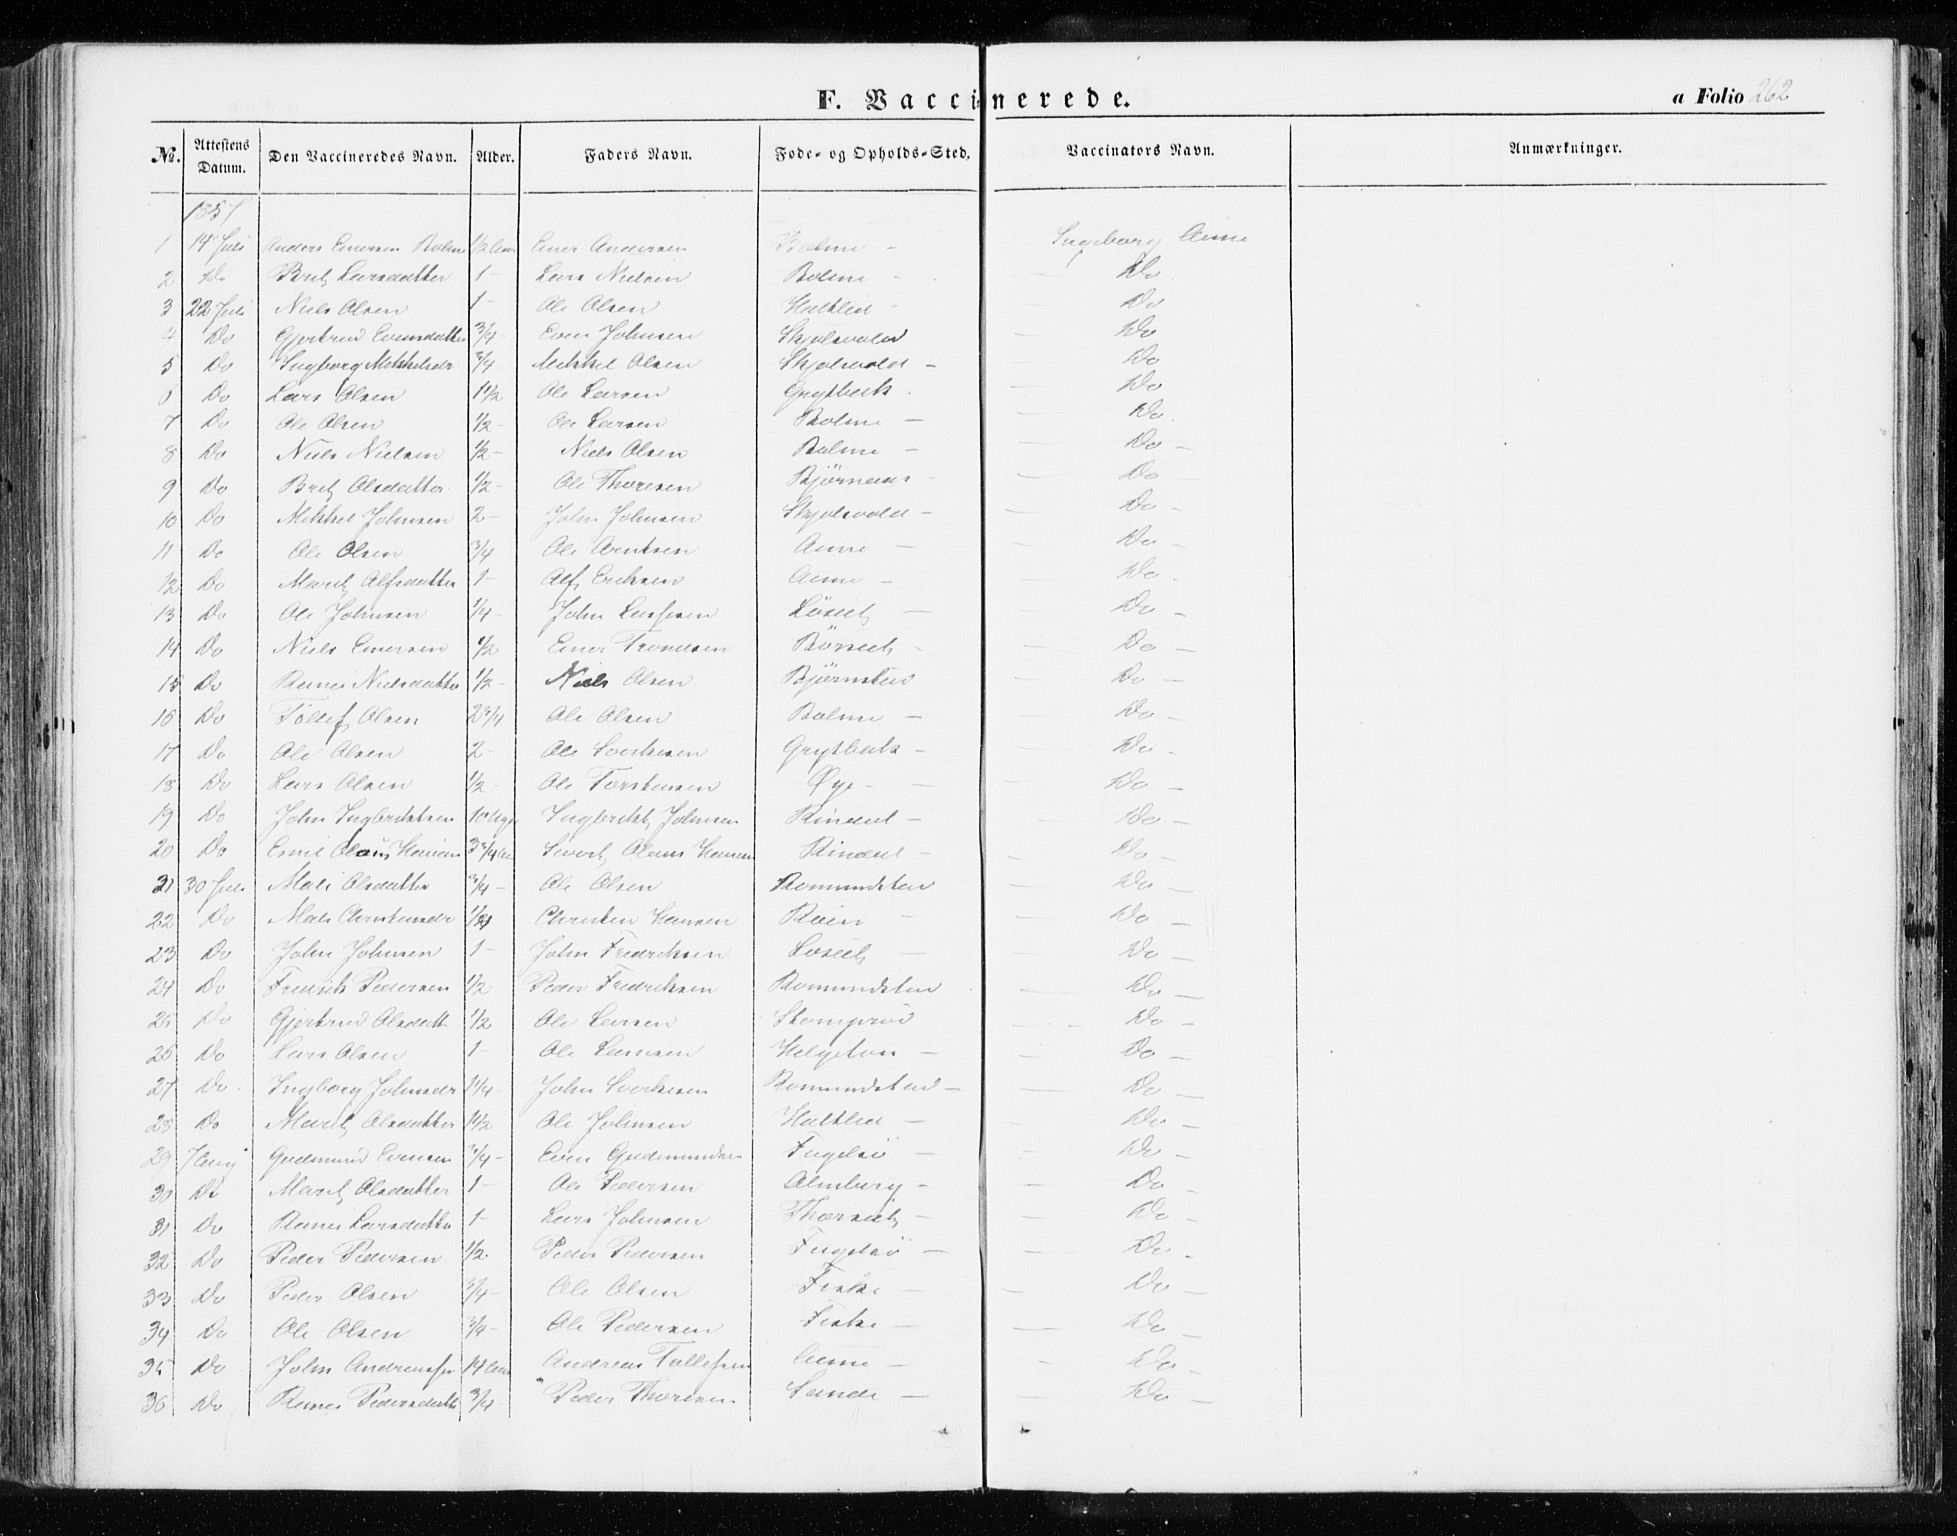 F. Vaccinerede.
a Folio 262
No. Attestens Datum. Den Vaccineredes Navn. Alder. Faders Navn. Føde- og Opholds-Sted. Vaccinators Navn. Anmærkninger.
1857
1 14 Juli Anders Einersen Bolme 1/2 Einer Andersen Bolme - Ingeborg Aune
2 Do Brit Larsdatter 1- Lars Nielsen Bolme - Do
3 22 Juli Niels Olsen 1- Ole Olsen Haltlid Do
4 Do Gjertrud Evensdatter 3/4- Even Johnsen Skjølsvold Do
5 Do Ingborg Mikkelsdr 3/4 Mikkel Olsen Skjølsvold - Do
6 Do Lars Olsen 1 1/2 Ole Larsen Grytbæk Do
7 Do Ole Olsen 1/2- Ole Larsen Bolme - Do
8 Do Niels Nielsen 1/2- Niels Olsen Bolme - Do -
9 Do Brit Olsdatter 1/2- Ole Thoresen Bjørnaas Do
10 Do Mikkel Johnsen 2- John Johnsen Skjølsvold - Do -
11 Do Ole Olsen 3/4 Ole Arntsen Aune - Do -
12 Do Marit Alfsdatter 1- Alf Eriksen Aune - Do
13 Do Ole Johnsen 1/4- John Løset - Do -
14 Do Niels Einersen 1/2 Einer Trondsen Børset - Do -
15 Do Nielsdatter 1/2- Niels Olsen Bjørnsted Do -
16 Do Tollef Olsen 2 3/4 Ole Olsen Bolme - Do -
17 Do Ole Olsen 2- Ole Sverkesen Grytbæk - Do -
18 Do Lars Olsen 1/2- Ole Torstensen Øye - Do -
19 Do John Ingbrektsen 10 Uger Ingbrikt Johnsen Rindal - Do -
20 Do Olaus Hansen 3 3/4 Sivert Olaus Hansen Rindal - Do -
21 30 Juli Mali Olsdatter 3/4- Ole Olsen Romundstad Do -
22 Do Mali Christensdr Christen Hansen Røen - Do -
23 Do John Johnsen 1- John Fredriksen Løset - Do -
24 Do Fredrik Pedersen 1/2 Peder Fredriksen Romundstad Do -
25 Do Gjertrud Olsdatt 1/2 Ole Larsen Skomprø Do -
26 Do Lars Olsen 1- Ole Larsen Helgeton - Do -
27 Do Ingborg Johnsdr 1 1/4- John Sverkesen Romundstad - Do -
28 Do Marit Olsdatter 1 1/2 Ole Johnsen Haltlid - Do -
29 7 Aug Gudmund Evensen 3/4- Even Gudmundsen Fugelsø - Do -
30 Do Marit Olsdatter 1- Ole Pedersen Almberg - Do -
31 Do Larsdatter 1- Lars Johnsen Thorset - Do -
32 Do Peder Pedersen 1/2 Peder Pedersen Fugelsø - Do -
33 Do Peder Olsen 3/4- Ole Olsen Fiske - Do -
34 Do Ole Olsen 3/4- Ole Pedersen Fiske - Do -
35 Do John 14 Andreas Tollefsen Aune - Do -
36 Do Pedersdatter 3/4- Peder Thoresen Sande - Do -